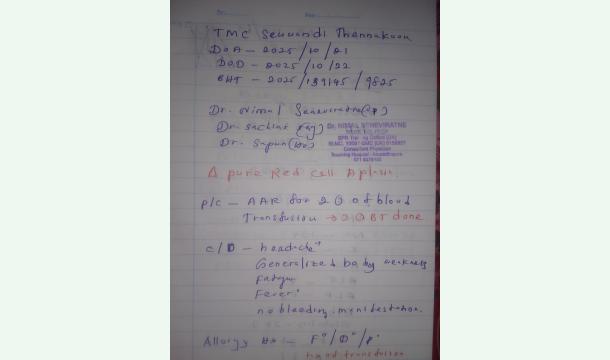 TMC Sewwandi Thennakoon
DOA - 2025/10/21
DOD - 2025/10/22
BHT - 2025/139145/9825
Dr. Nimal Senevirathe
Dr. Sachini (Reg)
Dr. Sapun (Ho)
Dr. NIMAL SENEVIRATNE
Consultant Physician
Teaching Hospital - Anuradhapura
Δ pure Red cell Aplasia.
P/c - AAR for 2 of blood
Transfusion → 2 BT done
c/o - headache°
Generalized body weakness
Fatigue
Fever°
no bleeding manifestation.
Allergy Hx :- F°/D°/P°
blood transfusion.